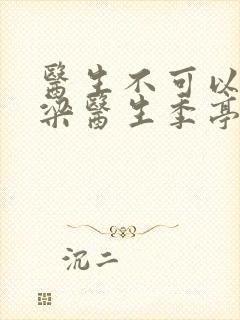 醫生不可以
梁醫生季亭
沉二